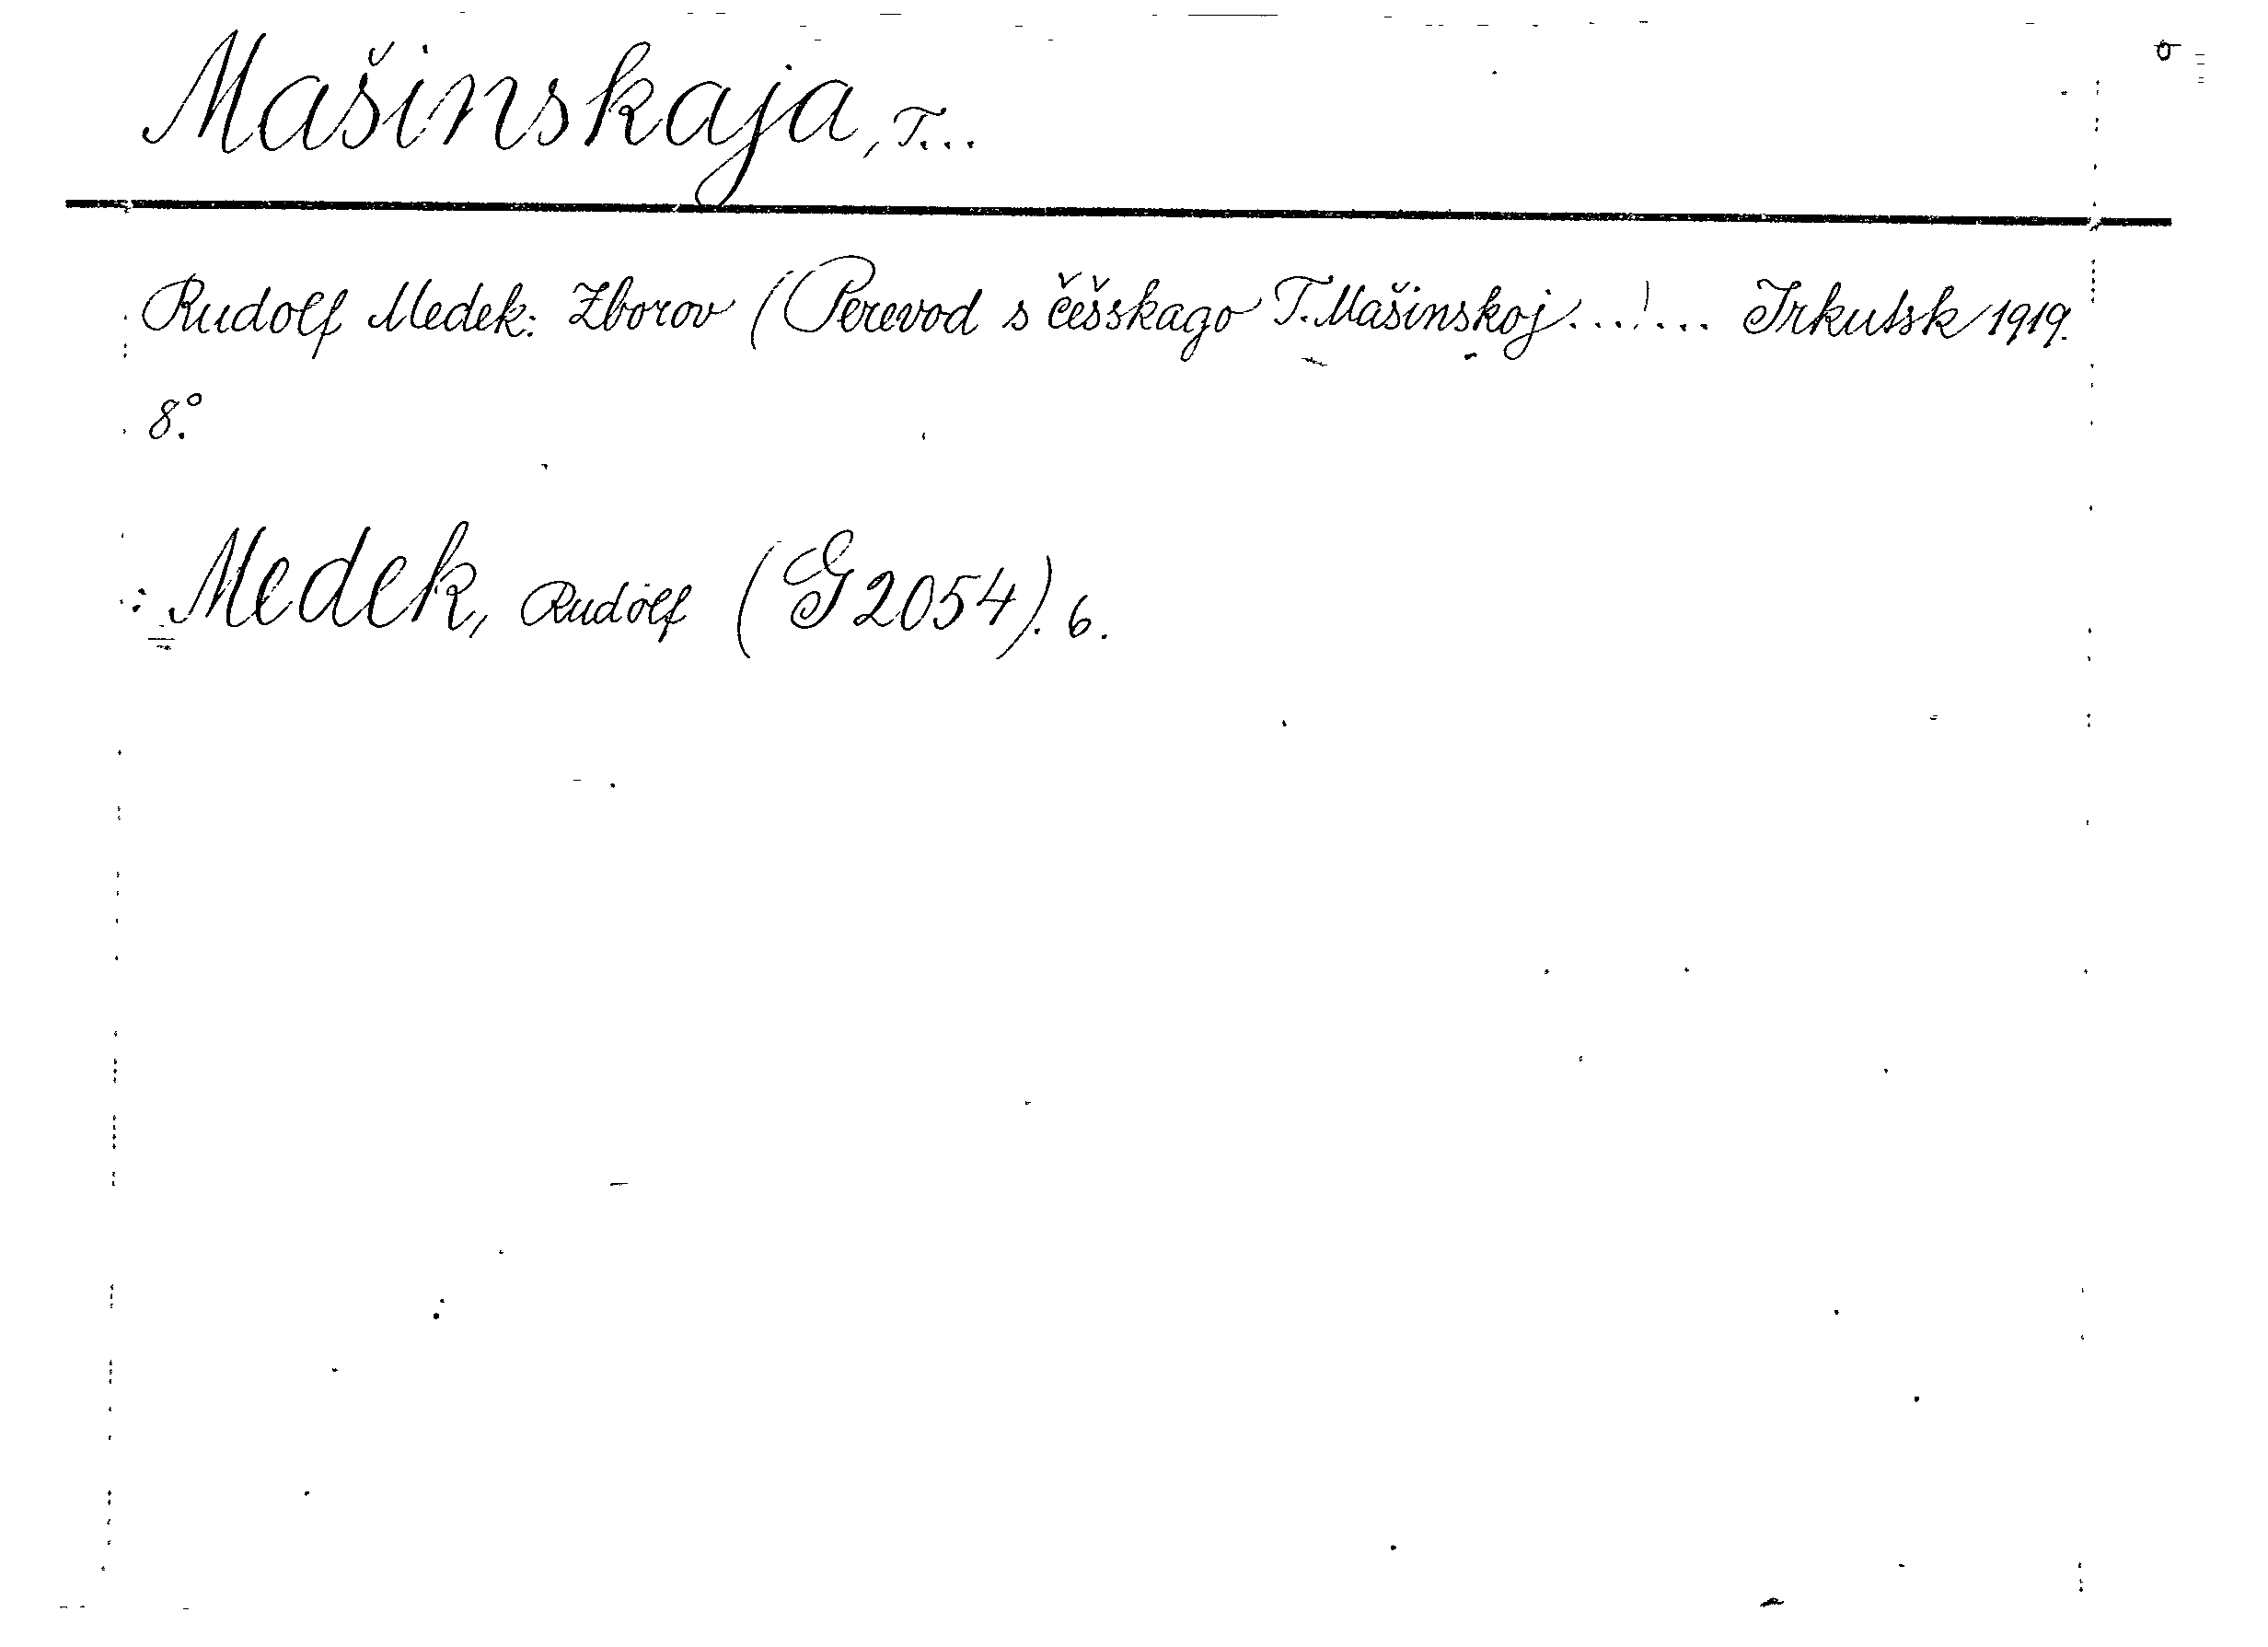 Mašinskaja, T...
Rudolf Medek: Zborov (Perevod s češskago T. Mašinskoj...)... Irkutsk 1919.
8°.
: Medek, Rudolf (G 2054). 6.